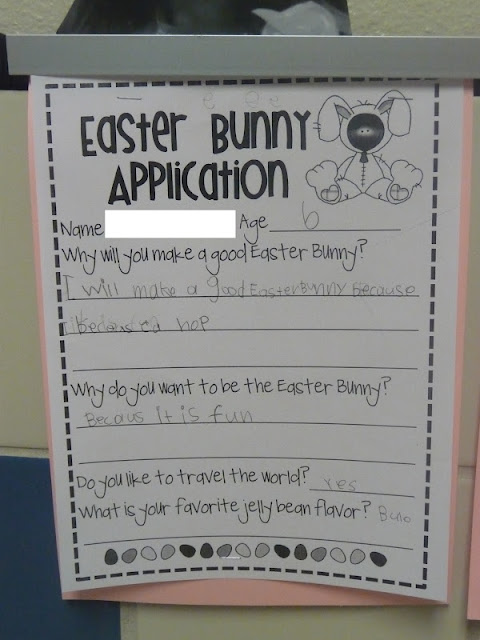 Easter Bunny
Application
Name Age 6
Why will you make a good Easter Bunny?
I will make a good Easter Bunny Because
hop
Why do you want to be the Easter Bunny?
Becaus it is fun
Do you like to travel the world? Yes
What is your favorite jelly bean flavor?